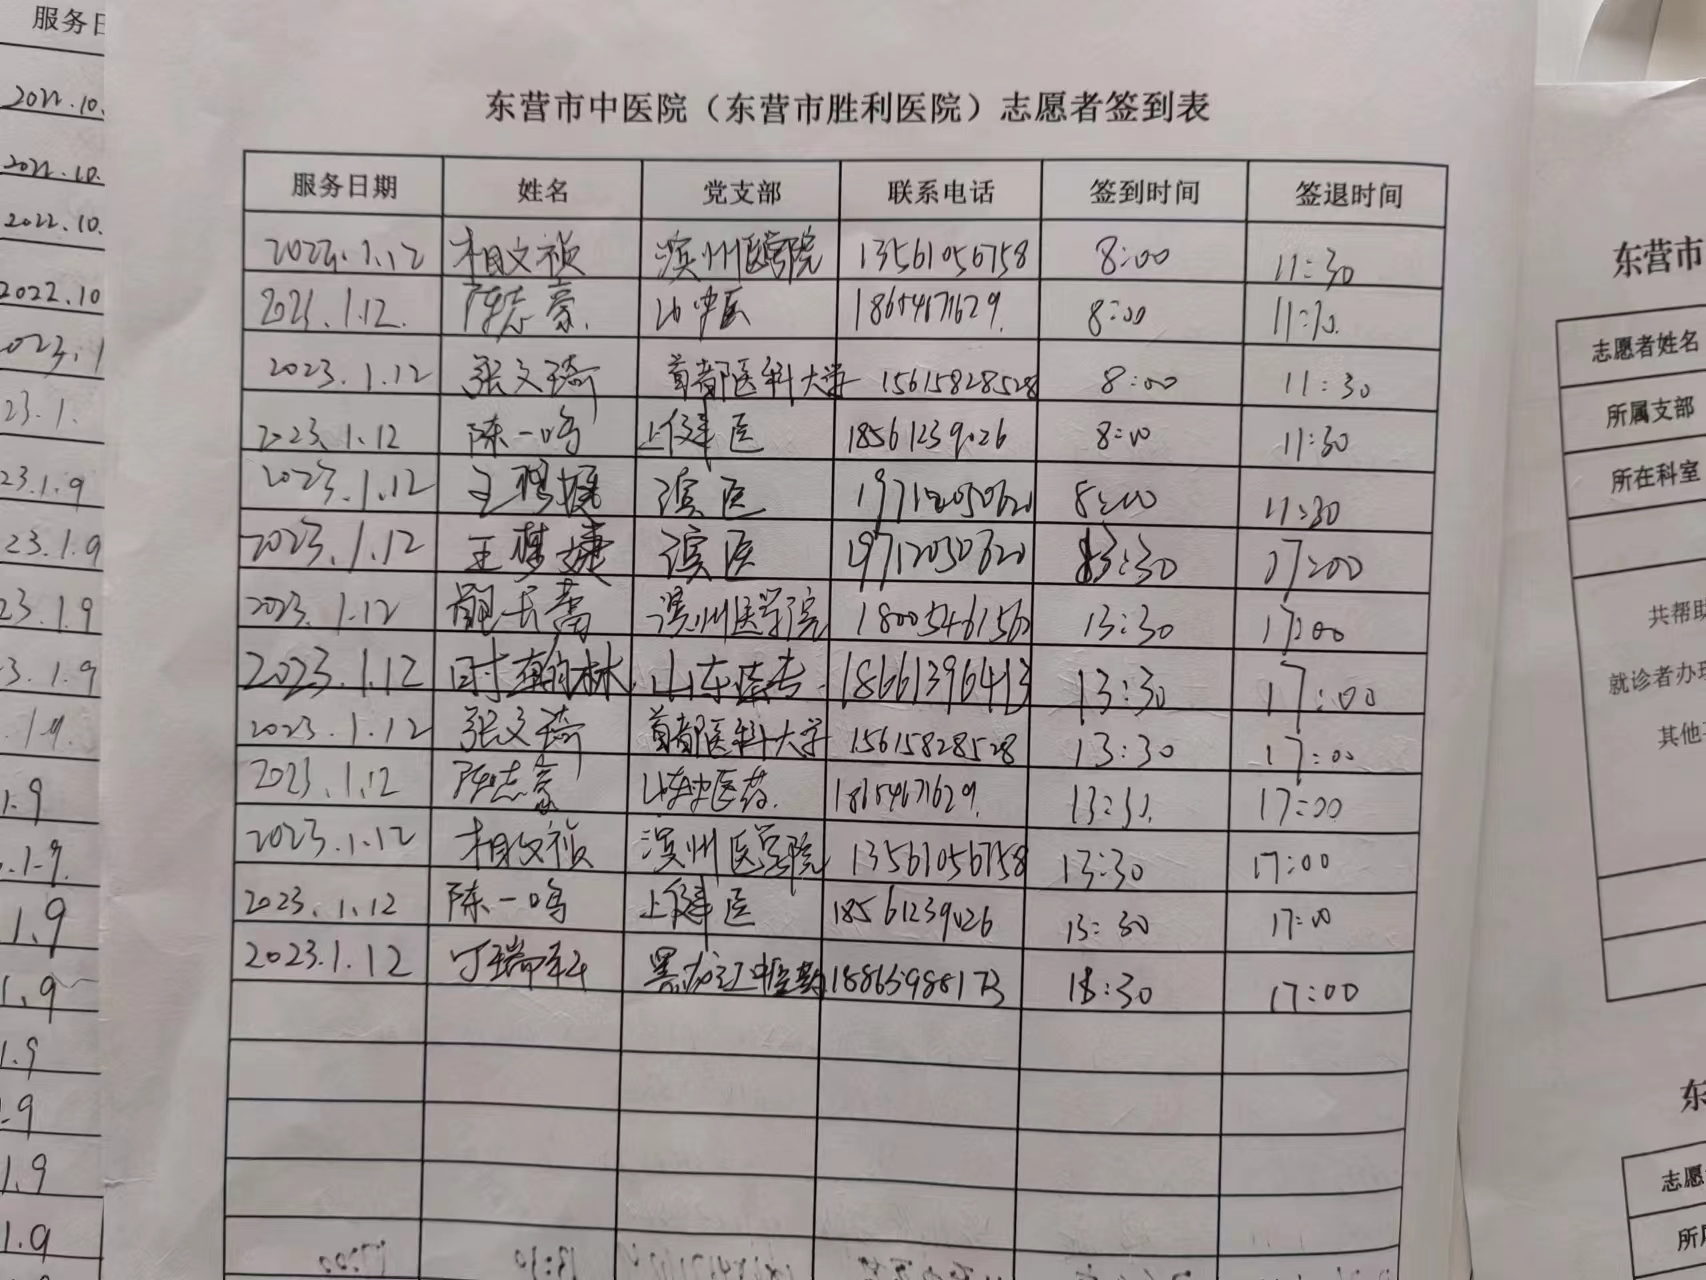 东营市中医院（东营市胜利医院）志愿者签到表
服务日期 姓名 党支部 联系电话 签到时间 签退时间
相文祯 滨州医学院 13561056758 8:00 11:30
1.12. 陈志豪. 山中医 18654671629. 8:00 11:30.
2023.1.12 张文琦 首都医科大学 15615828528 8:00 11:30
2023.1.12 陈一鸣 上健医 18561239026 8:00 11:30
2023.1.12 王 滨医 19712050620 8:00 11:30
2023.1.12 王梦婕 滨医 19712050620 13:30 17:00
2023.1.12 滨州医学院 18005461560 13:30 17:00
2023.1.12 时翰林 山东医专. 18661396413 13:30 17:00
2023.1.12 张文琦 首都医科大学 15615828528 13:30 17:00
2023.1.12 陈志豪 山东中医药. 18654671629. 13:30. 17:00
2023.1.12 相文祯 滨州医学院 13561056758 13:30 17:00
2023.1.12 陈一鸣 上健医 18561239026 13:30 17:00
2023.1.12 丁瑞 黑龙江中医药 18865988173 13:30 17:00
服务日
2022.10.
2022.10.
2022.10.
2022.10
2023.1
23.1.
23.1.9
23.1.9
23.1.9
3.1.9
.1.9.
1.9
.1.9.
1.9
1.9
1.9
1.9
1.9
1.9
东营市
志愿者姓名
所属支部
所在科室
共帮助
就诊者办理
其他
东
志愿
所属